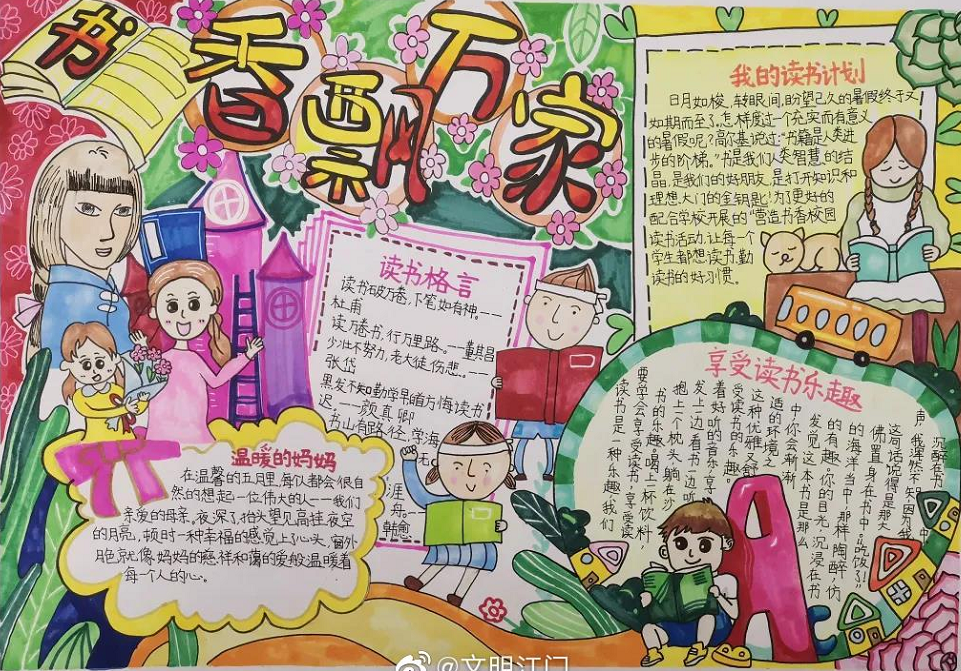 书香飘万家
我的读书计划
日月如梭,转眼间,盼望已久的暑假终于又
如期而至了,怎样度过一个充实而有意义
的暑假呢?高尔基说过:“书籍是人类进
步的阶梯。”书是我们人类智慧的结
晶,是我们的好朋友,是打开知识和
理想大门的金钥匙。为了更好的
配合学校开展的“营造书香校园
读书活动,让每一个
学生都想读书,勤
读书的好习惯。
读书格言
读书破万卷,下笔如有神。——
杜甫
读万卷书,行万里路。——董其昌
少壮不努力,老大徒伤悲。——
张岱
黑发不知勤学早,白首方悔读书
迟。——颜真卿
书山有路 径,学海
无
涯
舟。——
韩愈
温暖的妈妈
在温馨的五月里,每似都会很自
然的想起一位伟大的人——我们
亲爱的母亲。夜深了,抬头望见高挂夜空
的月亮,顿时一种幸福的感觉上心头,窗外
月色就像妈妈的慈祥和蔼的爱般温暖着
每一个人的心。
享受读书乐趣
读书是一种乐趣,我们
要学会享受读书,享受读
书的乐趣。喝上一杯饮料,
抱上个枕头,躺在沙
发上一边看书一边听
着好听的音乐,享
受读书的乐趣。
这种优雅又舒
适的环境之
中,你会渐渐
发觉这本书是那么
的有趣。你的目光沉浸在书
的海洋当中,那样陶醉,仿
佛置身在书中。“吃饭了!”
这句话 得是那大
声,我浑然不知,因为我
沉醉在书中
A
@文明江门